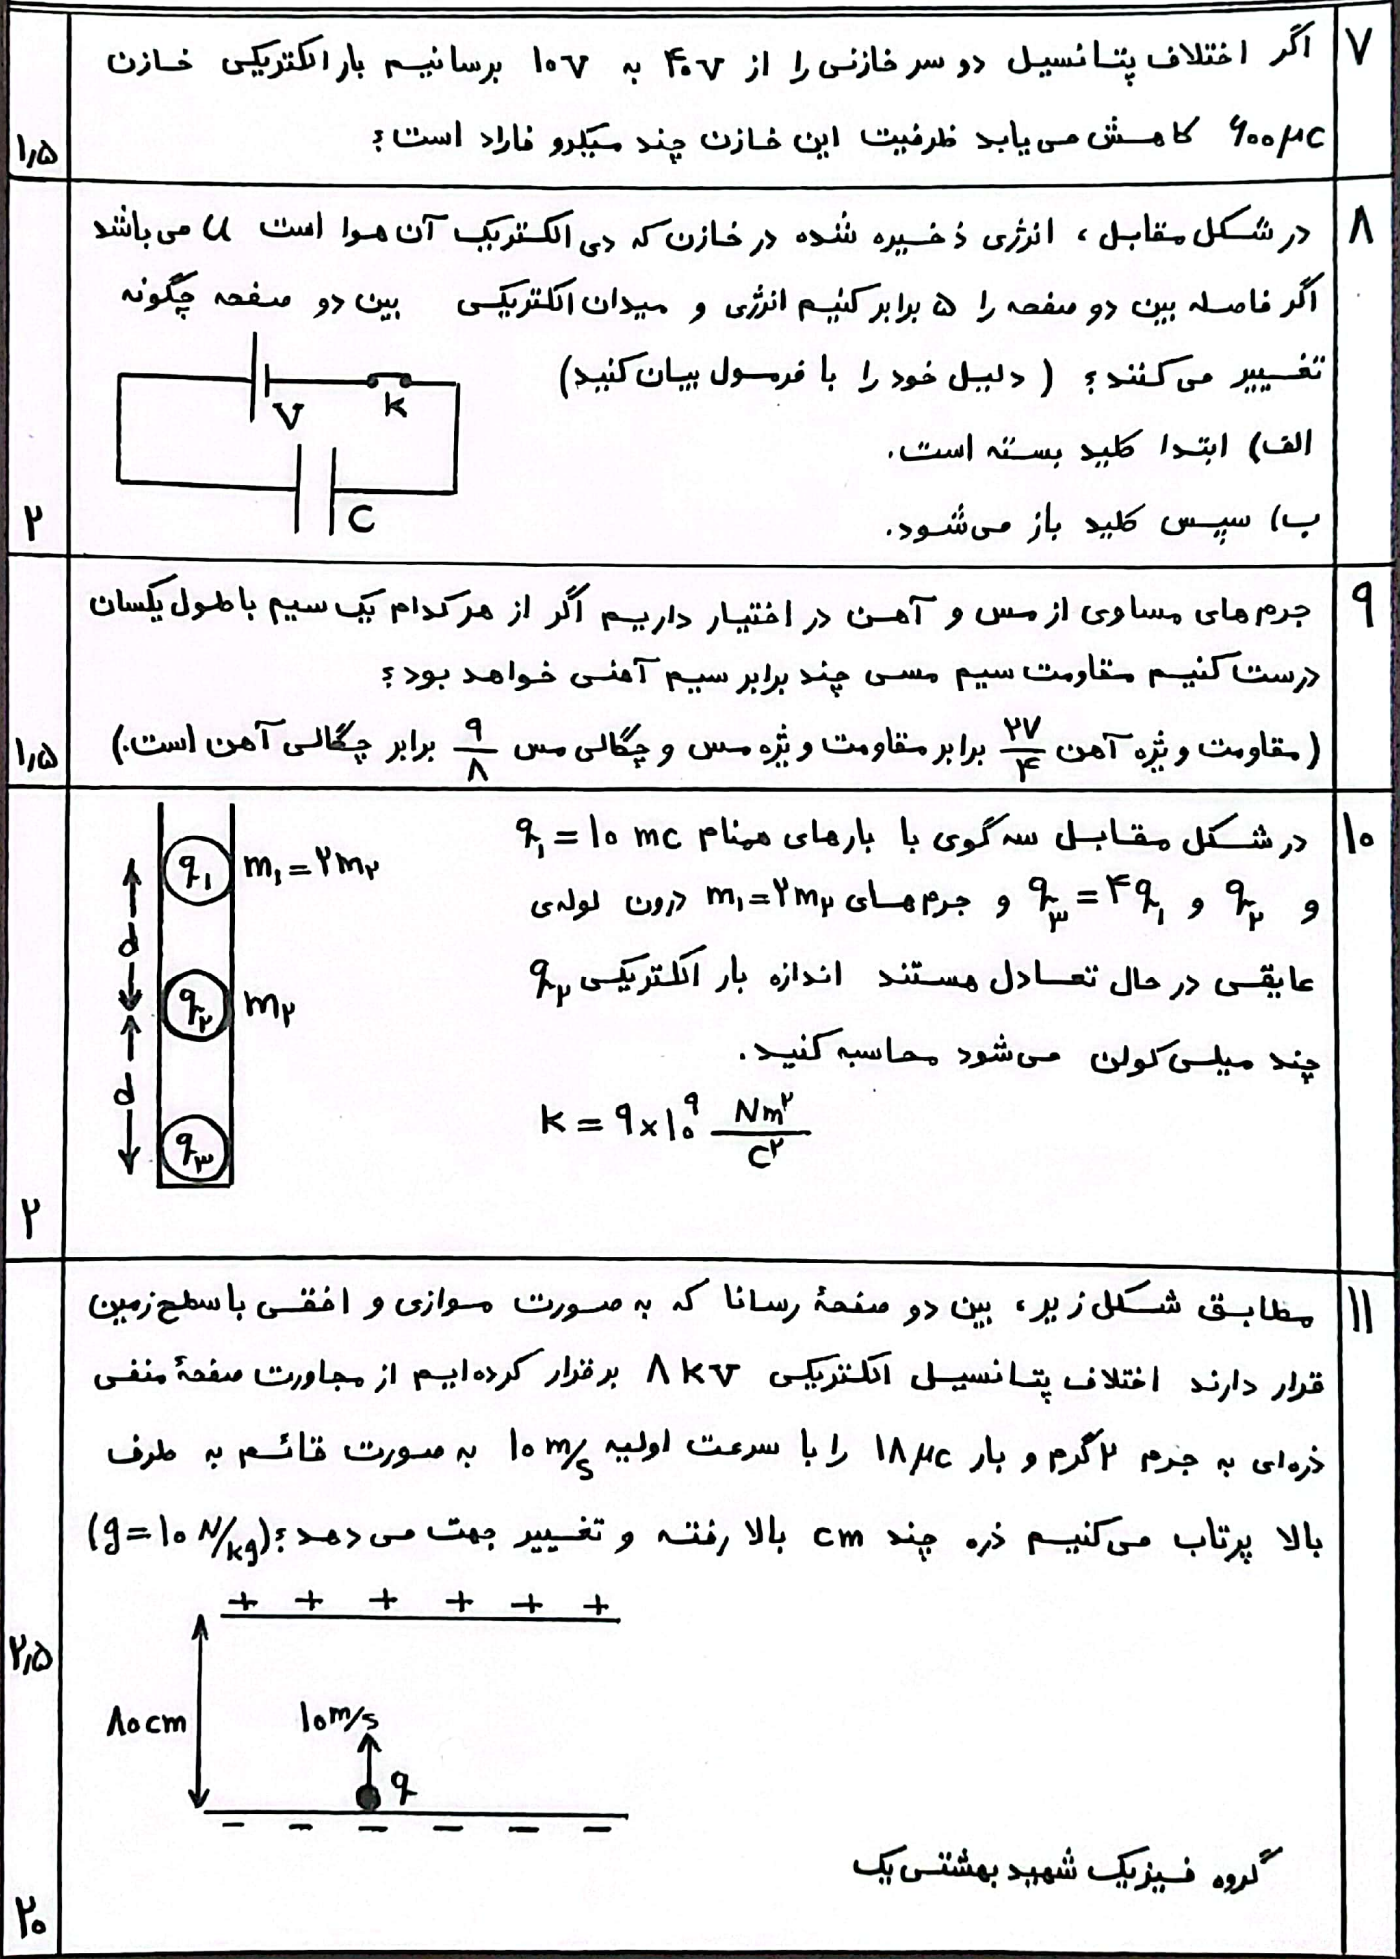 ۷
اگر اختلاف پتانسیل دو سر خازنی را از ۴۰v به ۱۰v برسانیم بار الکتریکی خازن
۶۰۰μc کاهش می یابد ظرفیت این خازن چند میکرو فاراد است؟
۱٫۵
۸
در شکل مقابل، انرژی ذخیره شده در خازن که دی الکتریک آن هوا است u می باشد
اگر فاصله بین دو صفحه را ۵ برابر کنیم انرژی و میدان الکتریکی بین دو صفحه چگونه
تغییر می کنند؟ (دلیل خود را با فرمول بیان کنید)
الف) ابتدا کلید بسته است.
ب) سپس کلید باز می شود.
V
K
C
۲
۹
جرم های مساوی از مس و آهن در اختیار داریم اگر از هر کدام یک سیم با طول یکسان
درست کنیم مقاومت سیم مسی چند برابر سیم آهنی خواهد بود؟
(مقاومت ویژه آهن ۲۷/۴ برابر مقاومت ویژه مس و چگالی مس ۹/۸ برابر چگالی آهن است.)
۱٫۵
۱۰
در شکل مقابل سه گوی با بارهای همنام q₁ = ۱۰ mc
و q₂ و q₃ = ۴q₁ و جرم های m₁ = ۲m₂ درون لوله ی
عایقی در حال تعادل هستند اندازه بار الکتریکی q₂
چند میلی کولن می شود محاسبه کنید.
K = ۹×۱۰⁹ Nm²/C²
q₁ m₁ = ۲m₂
d
q₂ m₂
d
q₃
۲
۱۱
مطابق شکل زیر، بین دو صفحۀ رسانا که به صورت موازی و افقی با سطح زمین
قرار دارند اختلاف پتانسیل الکتریکی ۸ kv برقرار کرده ایم از مجاورت صفحۀ منفی
ذره ای به جرم ۲ گرم و بار ۱۸μc را با سرعت اولیه ۱۰ m/s به صورت قائم به طرف
بالا پرتاب می کنیم ذره چند cm بالا رفته و تغییر جهت می دهد؟ (g = ۱۰ N/kg)
+ + + + + +
۸۰cm
۱۰m/s
q
− − − − − −
۲٫۵
گروه فیزیک شهید بهشتی یک
۲۰